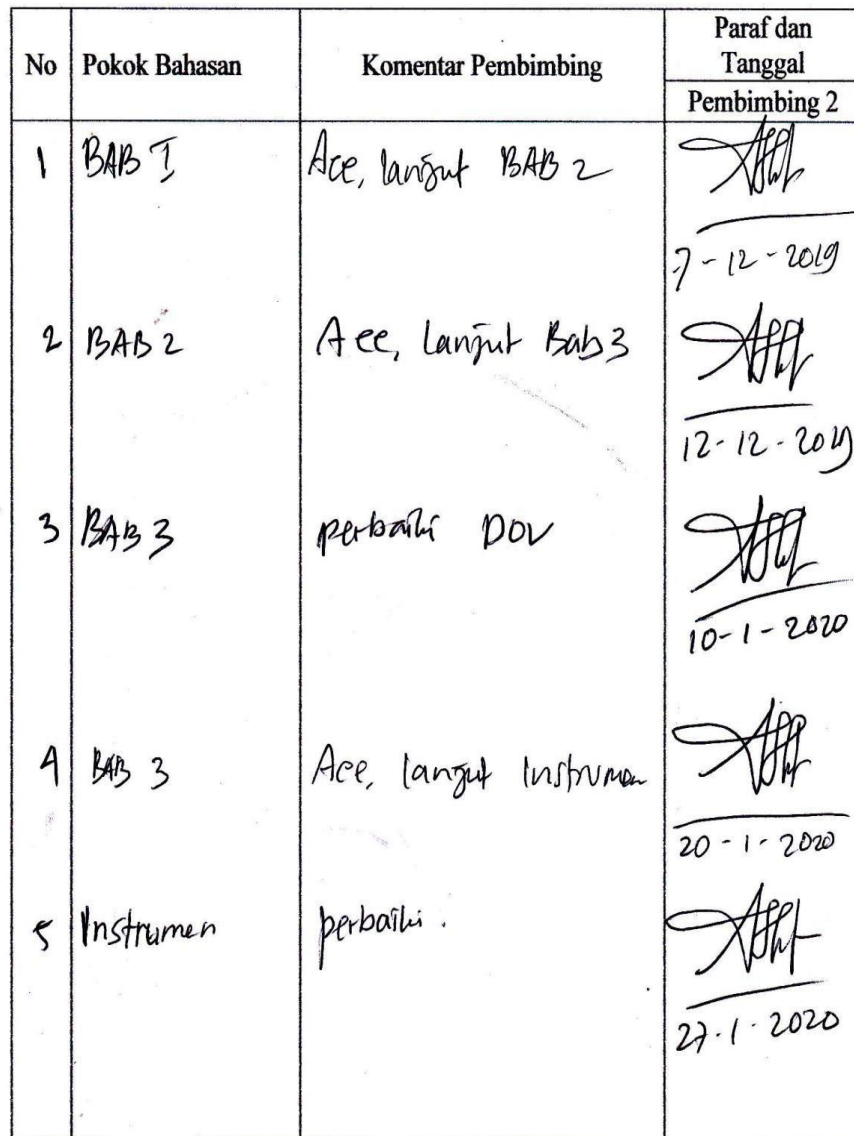 No Pokok Bahasan Komentar Pembimbing Paraf dan Tanggal
Pembimbing 2
1 BAB I Acc, lanjut BAB 2
7-12-2019
2 BAB 2 Acc, lanjut Bab 3
12-12-2019
3 BAB 3 perbaiki DOV
10-1-2020
4 BAB 3 Acc, lanjut Instrumen
20-1-2020
5 Instrumen perbaiki.
27.1.2020